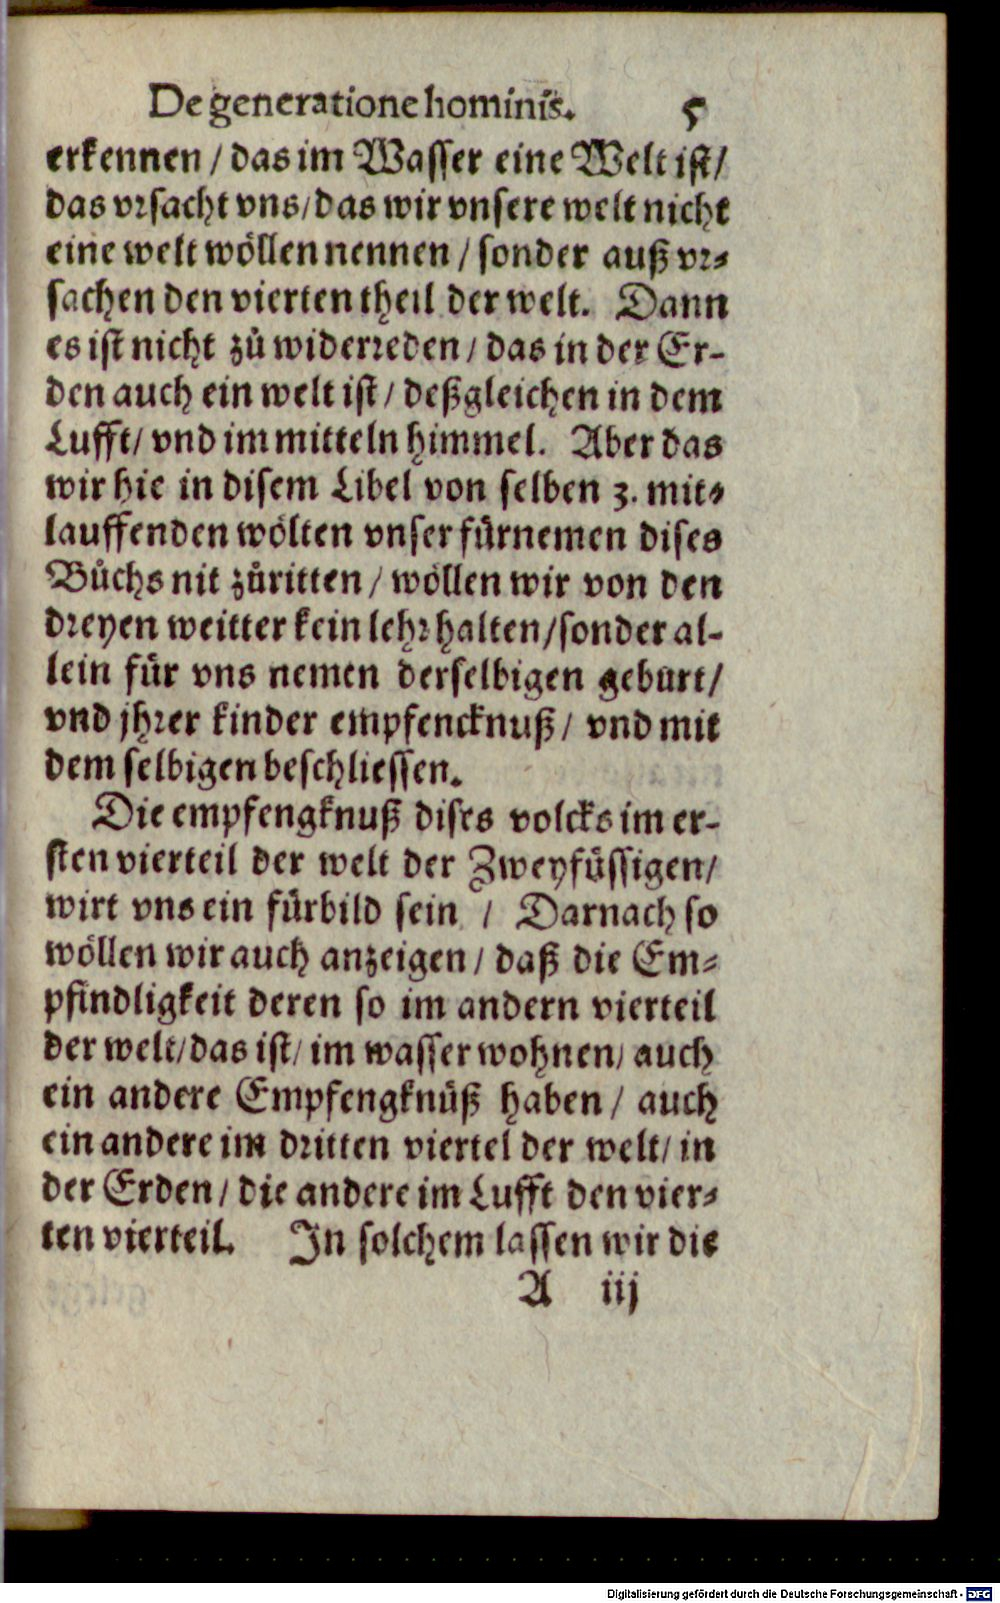 De generatione hominis. 5
erkennen / das im Wasser eine Welt ist /
das vrsacht vns / das wir vnsere welt nicht
eine welt wöllen nennen / sonder auß vr⸗
sachen den vierten theil der welt. Dann
es ist nicht zů widerreden / das in der Er-
den auch ein welt ist / deßgleichen in dem
Lufft / vnd im mitteln himmel. Aber das
wir hie in disem Libel von selben 3. mit⸗
lauffenden wölten vnser fürnemen dises
Bůchs nit zůritten / wöllen wir von den
dreyen weitter kein lehr halten / sonder al-
lein für vns nemen derselbigen geburt /
vnd jhrer kinder empfencknuß / vnd mit
dem selbigen beschliessen.
Die empfengknuß dises volcks im er-
sten vierteil der welt der Zweyfüssigen /
wirt vns ein fürbild sein / Darnach so
wöllen wir auch anzeigen / daß die Em⸗
pfindligkeit deren so im andern vierteil
der welt / das ist / im wasser wohnen / auch
ein andere Empfengknüß haben / auch
ein andere im dritten viertel der welt / in
der Erden / die andere im Lufft den vier⸗
ten vierteil. In solchem lassen wir die
A iij
Digitalisierung gefördert durch die Deutsche Forschungsgemeinschaft - DFG